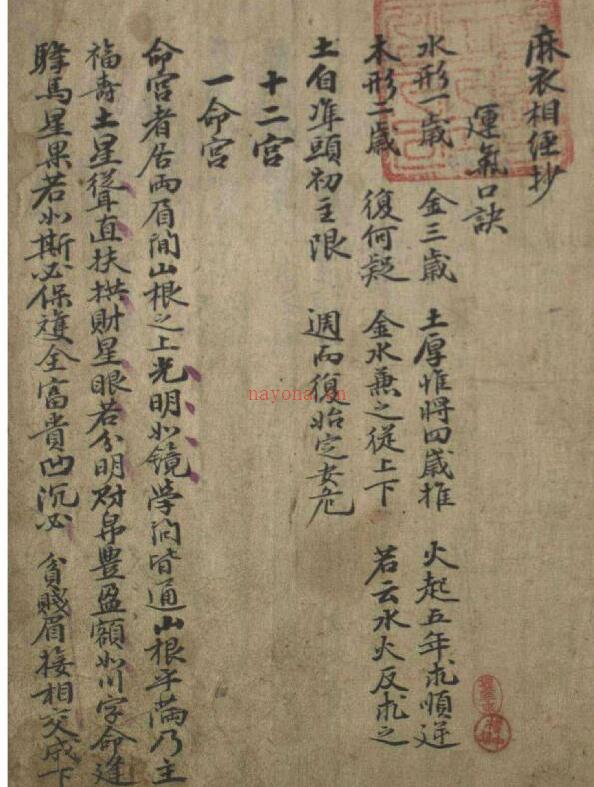 麻衣相经抄
運氣口訣
水形一歲 金三歲 土厚惟将四歲推 火起五年求順逆
木形二歲 復何疑 金水兼之従上下 若云水火反求之
土自準頭初主限 週而復始定安危
十二宫
一命宫
命宫者居両眉间山根之上光明如镜学问皆通山根平满乃主
福壽土星聳直扶拱財星眼若分明財帛豊盈額如川字命逢
驛馬星果若如斯必保雙全富貴凹沉必 貧賤眉接相交成下
nayona.cn